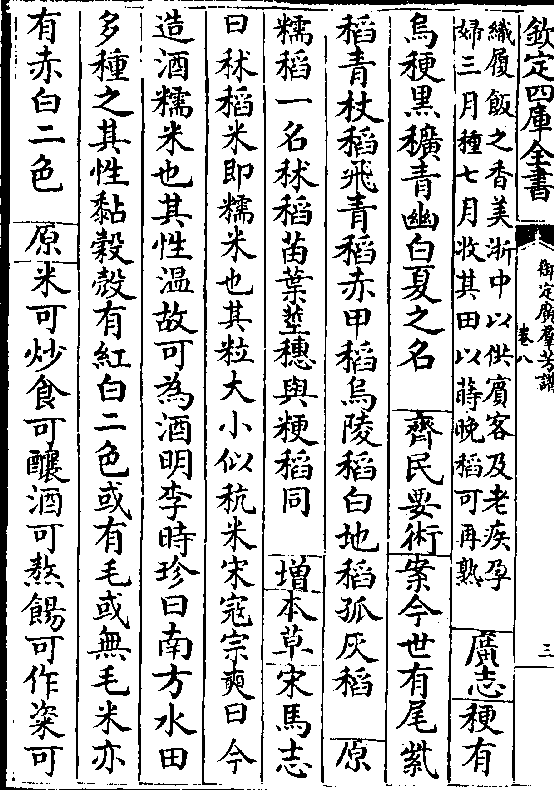 欽定四庫全書
御定廣羣芳譜
卷八
三
纖履飯之香美浙中以供賓客及老疾孕
婦三月種七月收其田以蒔晚稻可再熟
廣志
粳有
烏粳黑穬青幽白夏之名　齊民要術案今世有尾紫
稻青杖稻飛青稻赤甲稻烏陵稻白地稻孤灰稻　原
糯稻一名秫稻苗葉莖穗與粳稻同　增本草宋馬志
曰秫稻米即糯米也其粒大小似秔米宋宼宗奭曰今
造酒糯米也其性温故可為酒明李時珍曰南方水田
多種之其性黏榖殼有紅白二色或有毛或無毛米亦
有赤白二色　原米可炒食可釀酒可熬餳可作粢可